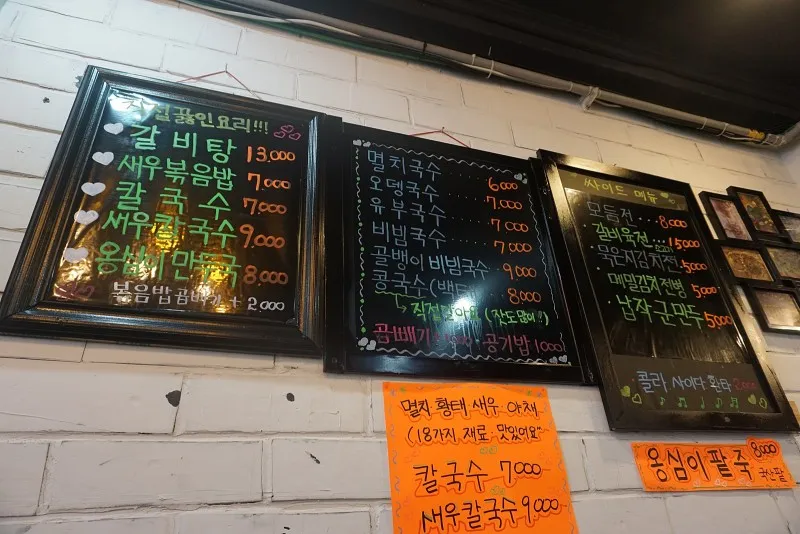 직접끓인요리!!!
갈비탕 13,000
새우볶음밥 7,000
칼국수 7,000
새우칼국수 9,000
옹심이만두국 8,000
볶음밥곱빼기 +2,000
멸치국수 6,000
오뎅국수 7,000
유부국수 7,000
비빔국수 7,000
골뱅이비빔국수 9,000
콩국수(백태) 8,000
직접갈아요 (잣도많이!!)
곱빼기 공기밥 1000
싸이드 메뉴
모듬전 8,000
갈비육전 15,000
묵은지김치전 5,000
메밀김치전병 5,000
납작군만두 5,000
콜라 사이다 환타 2,000
멸치 황태 새우 야채
(18가지 재료 맛있어요~
칼국수 7000
새우칼국수 9,000
옹심이팥죽 8,000
국산팥